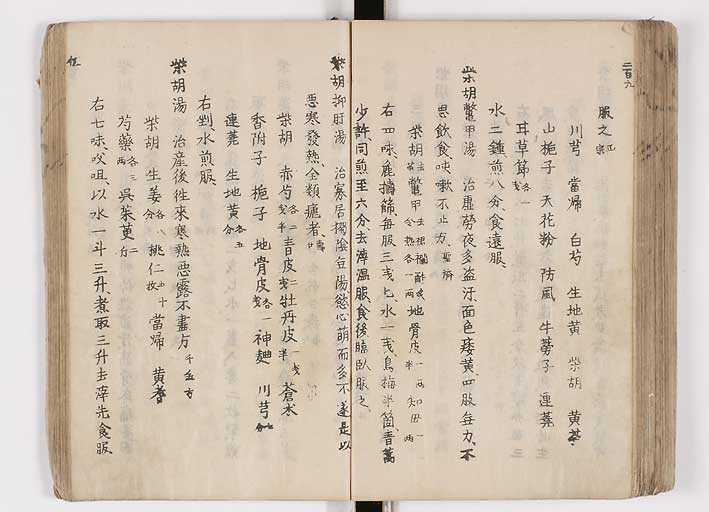 二百九
服之
川芎 當帰 白芍 生地黄 柴胡 黄芩
山梔子 天花粉 防風 牛蒡子 連蕘
耳草節 各一戔
水二鍾煎八分食遠服
柴胡鱉甲湯 治虚勞夜多盗汗面色痿黄四肢無力不
思飲食咳嗽不止方
柴胡去苗 鱉甲 地骨皮一両半 知母一両
右四味麁擣篩毎服三戔匕水一戔烏梅半箇青蒿
少許同煎至六分去滓温服食後臨臥服之
柴胡抑肝湯 治寡居獨陰無陽慾心萌而多不遂是以
悪寒發熱全類瘧者
柴胡 赤芍 青皮各二戔 牡丹皮一戔半 蒼朮
香附子 梔子 地骨皮各一戔 神麯 川芎
連蕘 生地黄各五分
右剉水煎服
柴胡湯 治産後徃來寒熱悪露不盡方 千金方
柴胡 生姜各八分 桃仁五十枚 當帰 黄耆
芍藥各三両 呉茱萸二分
右七味㕮咀以水一斗三升煮取三升去滓先食服